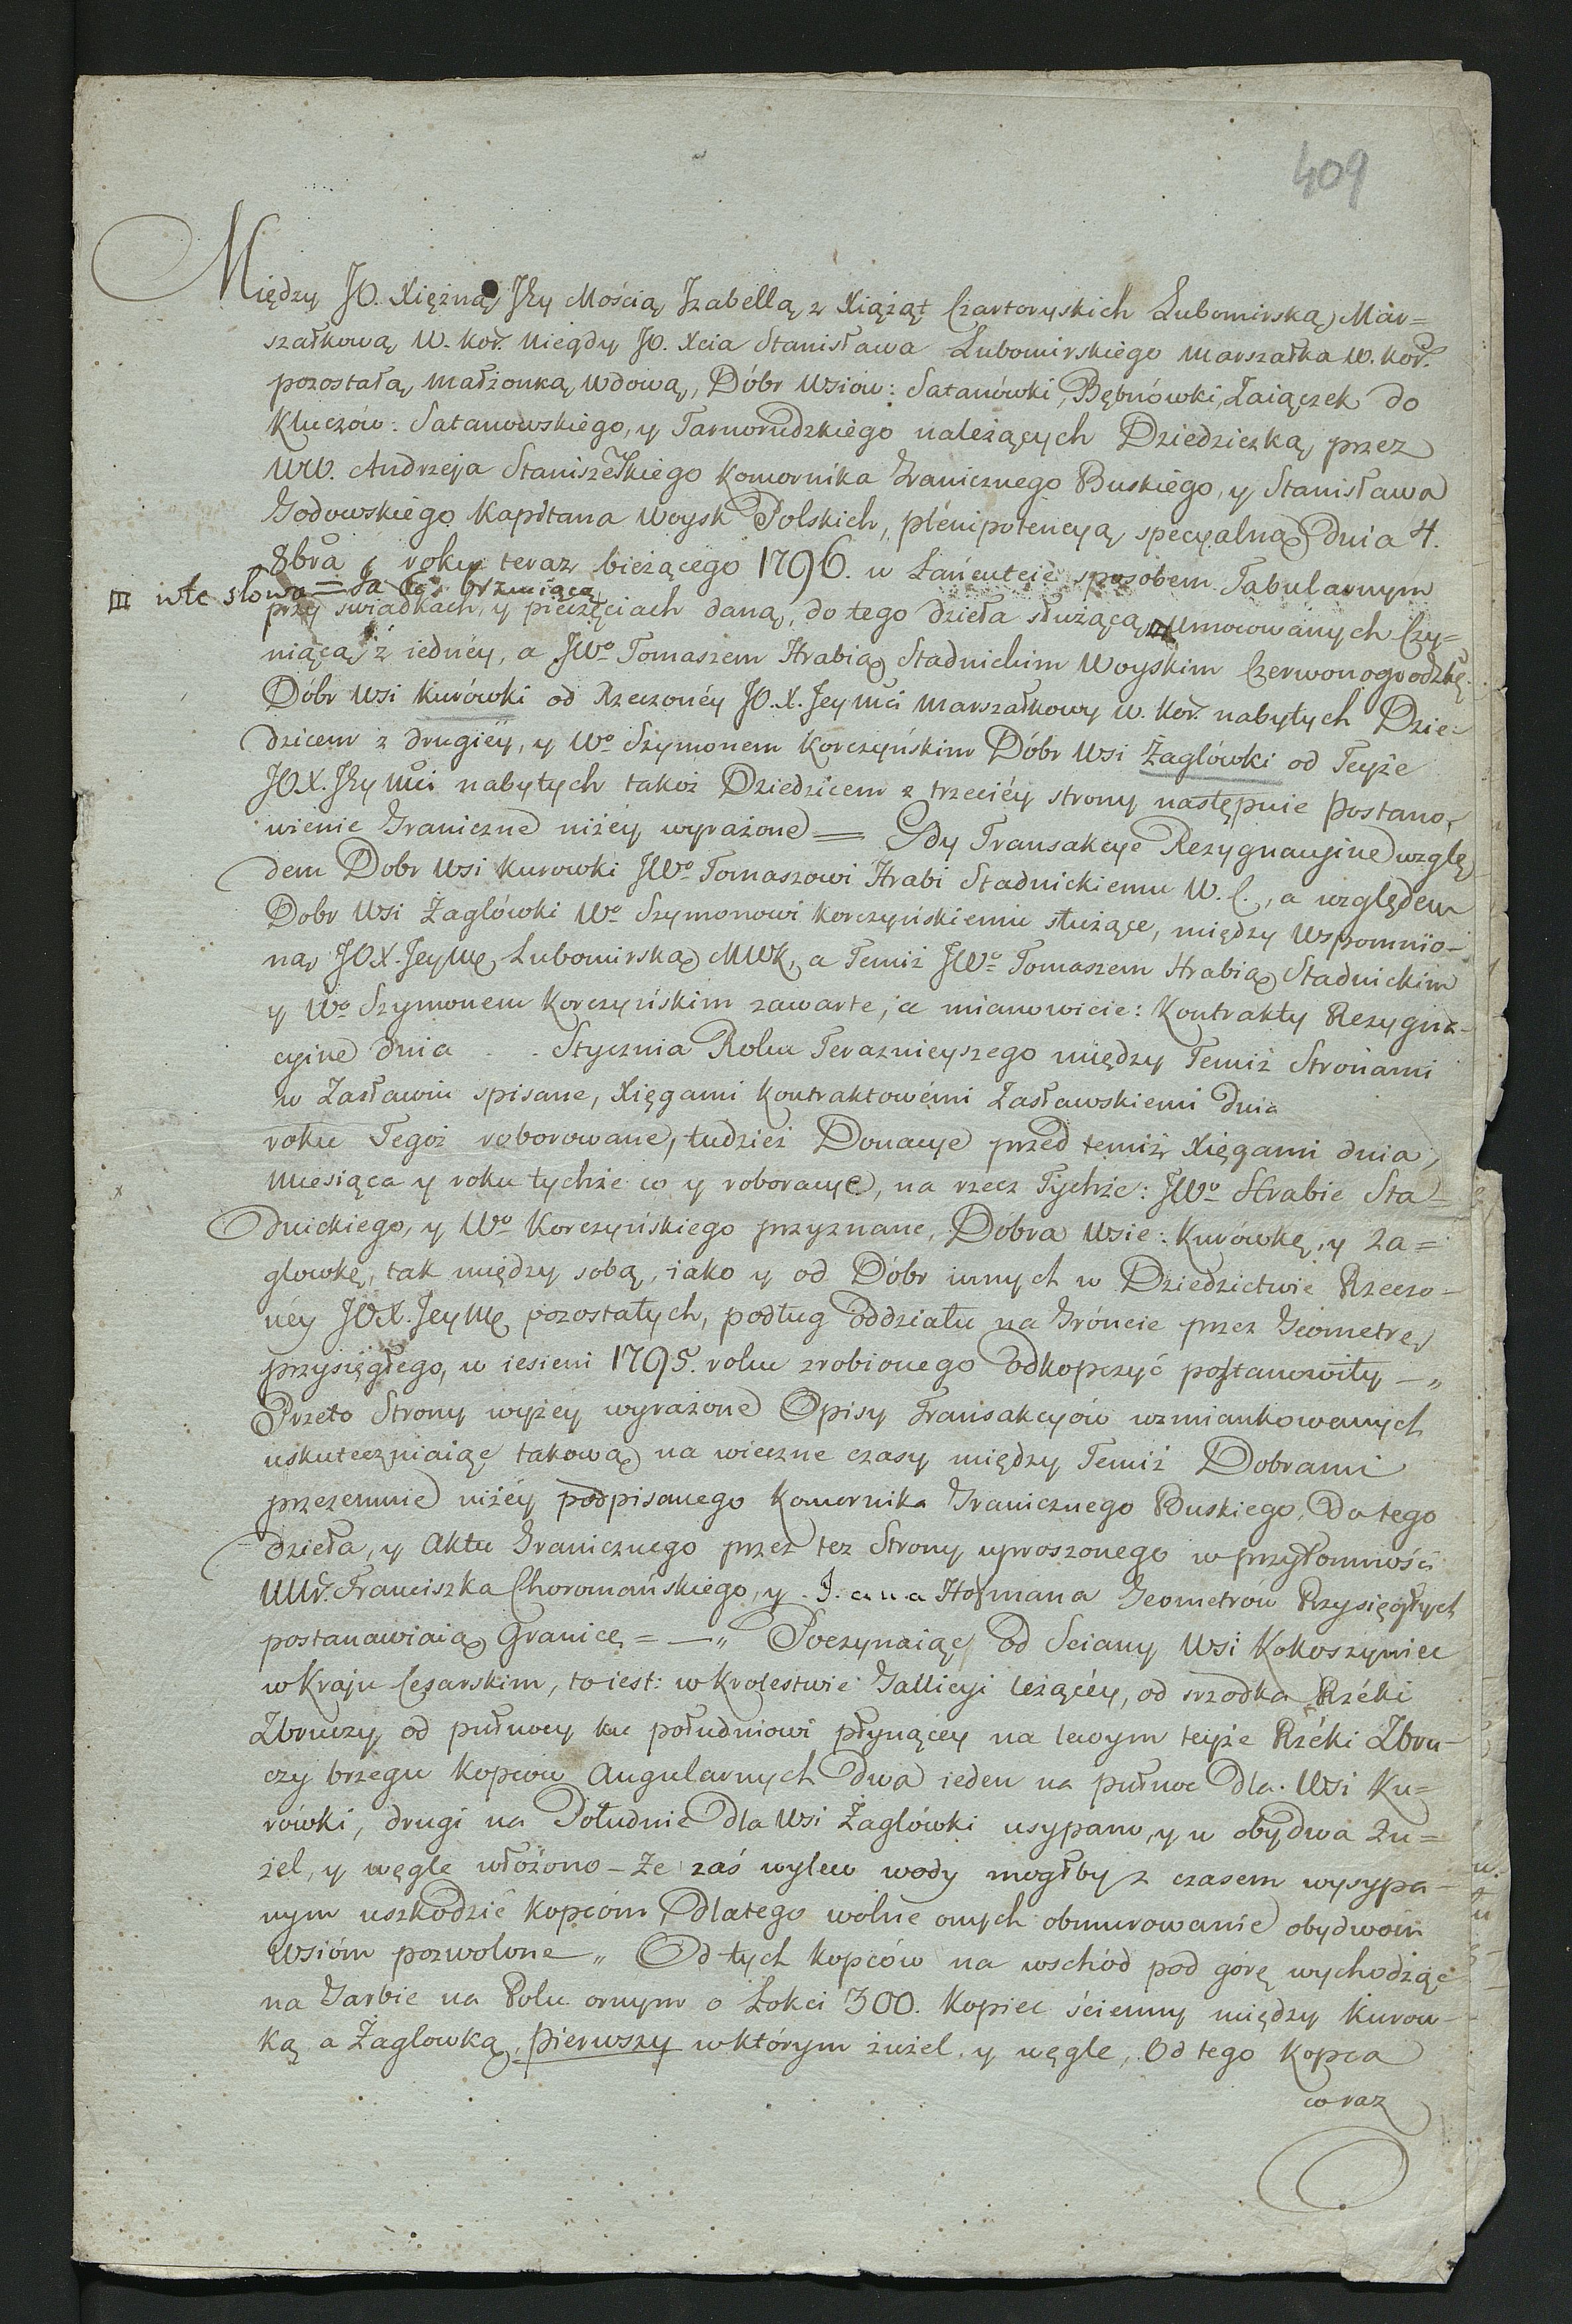 409
Między JO. Xiężną Jey Mością Izabellą z Xiążąt Czartoryskich Lubomirską, Mar=
szałkową W. Kor. niegdy JO. Xcia Stanisława Lubomirskiego Marszałka W. Kor.
pozostałą małżonką wdową, Dóbr Wsiów: Satanówki, Bębnówki, Zaiączek do
Kluczów: Satanowskiego, y Tarnorudzkiego należących Dziedziczką, przez
WW. Andrzeja Staniszewskiego Komornika Granicznego Buskiego, y Stanisława
Godowskiego Kapitana Woysk Polskich, plenipotencyą specyalną dnia 4.
8bra roku teraz bieżącego 1796. w Łańcucie sposobem Tabularnym
III w te słowa = brzmiącą
przy swiadkach, y pieczęciach daną, do tego dzieła służącą III Umocowanych Czy=
niącą z iednéy, a JWo Tomaszem Hrabią Stadnickim Woyskim Czerwonogrodzkę.
Dóbr Wsi Kurówki od Rzeczonéy JO. X. Jey Mci Marszałkowy W. Kor. nabytych Dzie-
dzicem z drugiéy, y Wo Szymonem Korczyńskim Dóbr Wsi Żaglówki od Teyże
JOX. Jey Mci nabytych takoż Dziedzicem z trzeciéy strony następuie Postano-
wienie Graniczne niżéy wyrażone = Gdy Transakcye Rezygnacyine wzglę
dem Dobr Wsi Kurowki JWo Tomaszowi Hrabi Stadnickiemu W. C., a względem
Dobr Wsi Żaglówki Wo Szymonowi Korczyńskiemu służące, między Wspomnio-
ną JOX. Jeymę Lubomirską MWK, a Temiż JWo Tomaszem Hrabią Stadnickim
y Wo Szymonem Korczyńskim zawarte, a mianowicie: Kontrakty Rezygna-
cyine dnia . . Stycznia Roku Teraznieyszego między Temiż Stronami
w Zasławiu spisane, Xięgami Kontraktowémi Zasławskiemi dnia
roku Tegoż roborowane, tudzież Donacye przed temiż Xięgami dnia,
Miesiąca y roku tychże co y roboracye, na rzecz Tychże: JWo Hrabie Sta-
dnickiego, y Wo Korczyńskiego przyznane, Dobra Wsie: Kurówkę, y Za=
glowkę, tak między sobą, iako y od Dóbr innych w Dziedzictwie Rzeczo-
néy JOX. Jeymę pozostałych, podług Oddziału na Gróncie przez Geometrę
przysięgłego, w iesieni 1795. roku zrobionego odkopczyć postanowiły —„
Przeto Strony wyżéy wyrażone Opisy Transakcyów wzmiankowanych
uskuteczniaiąc takową na wieczne czasy między Temiż Dobrami
przezemnie niżéy podpisanego Komornika Granicznego Buskiego, Do tego
dzieła, y Aktu Granicznego przez też Strony uproszonego w przytomności
WW. Franciszka Choromańskiego, y Jana Hofmana Geometrów Przysięgłych
postanawiaią Granicę = —„ Poczynaiąc od Sciany Wsi Kokoszyniec
w Kraju Cesarskim, to iest: w Krolestwie Gallicyi leżącéy, od srzodka Rzéki
Zbruczy, od pułnocy ku południowi płynącey na lewym teyże Rzéki Zbru-
czy brzegu Kopców Angularnych dwa ieden na pułnoc dla Wsi Ku=
rówki, drugi na Południe dla Wsi Żaglówki usypano, y w obydwa żu=
żel, y węgle włożono - Że zaś wylew wody mogłby z czasem wysypa-
nym uszkodzić Kopcóm, dlatego wolne onych obmurowanie obydwóm
Wsióm pozwolone „ Od tych Kopców na wschód pod górę wychodząc
na Garbie na Polu ornym o Łokci 300. Kopiec ścienny między Kurow-
ką a Żaglowką, Pierwszy w którym żużel, y węgle, Od tego Kopca
coraz